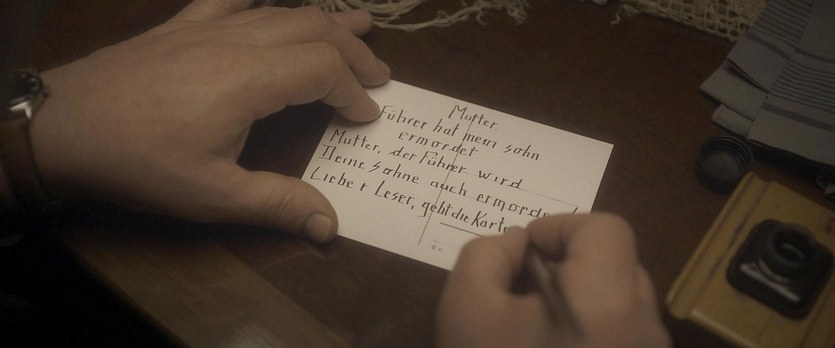 Mutter.
Führer hat mein sohn
ermordet
Mutter, der Führer wird
Deine sohne auch ermorde
Lieber Leser, gebt die Karte